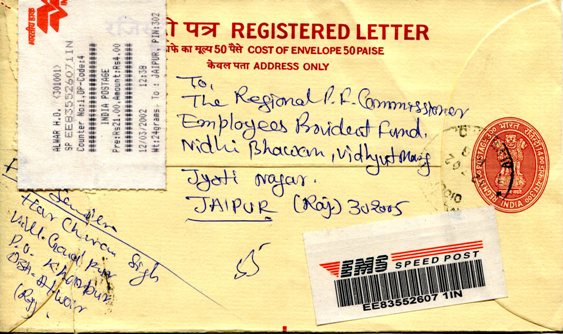 रजिस्ट्री पत्र REGISTERED LETTER
लिफाफे का मूल्य 50 पैसे COST OF ENVELOPE 50 PAISE
केवल पता ADDRESS ONLY
भारतीय डाक
ALWAR H.O. (301001)
SP EE835526071IN
Counter No:1,OP-Code:4
INDIA POSTAGE
Pre:Rs21.00,Amount:Rs4.00
12/03/2002 12:38
Wt:24grams, To : JAIPUR, PIN:302
To,
The Regional P.F. Commissioner
Employees Provident Fund,
Nidhi Bhawan, Vidhyut Marg
Jyoti Nagar.
JAIPUR (Raj) 302005
INDIA
Singh
P.O. Khanpur
Dist. Alwar
(Raj)
EMS SPEED POST
EE83552607 1IN